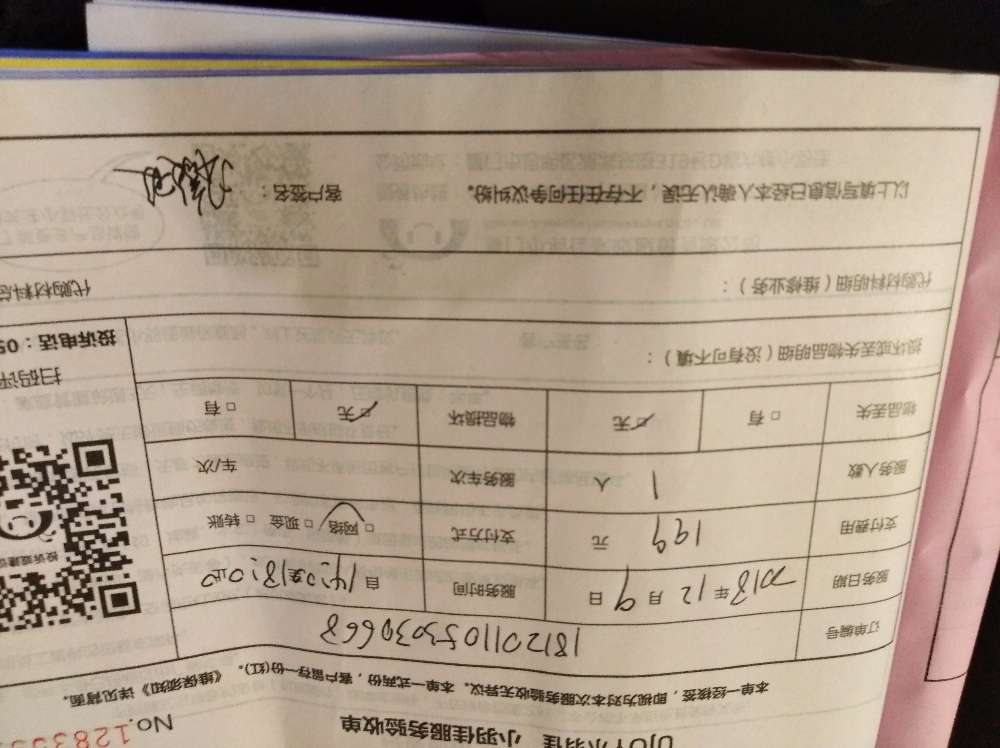 小羽佳服务验收单
No.1283
本单一经接签，即视为对本次服务验收无异议。本单一式两份，客户留存一份(红)。《维保须知》详见背面。
订单编号 1812011053030668
服务日期 2018年12月9日 服务时间 自14:02至18:02止
支付费用 199 元 支付方式 □网络 □现金 □转账
服务人数 1 人 服务车次 车/次
物品丢失 □有 □无 物品损坏 □无 □有
损坏或丢失物品明细（没有可不填）：
扫码评
投诉电话：05
代购材料明细（维修业务）：
代购材料总
以上填写信息已经本人确认无误，不存在任何争议纠纷。 客户签名：
投诉或建议